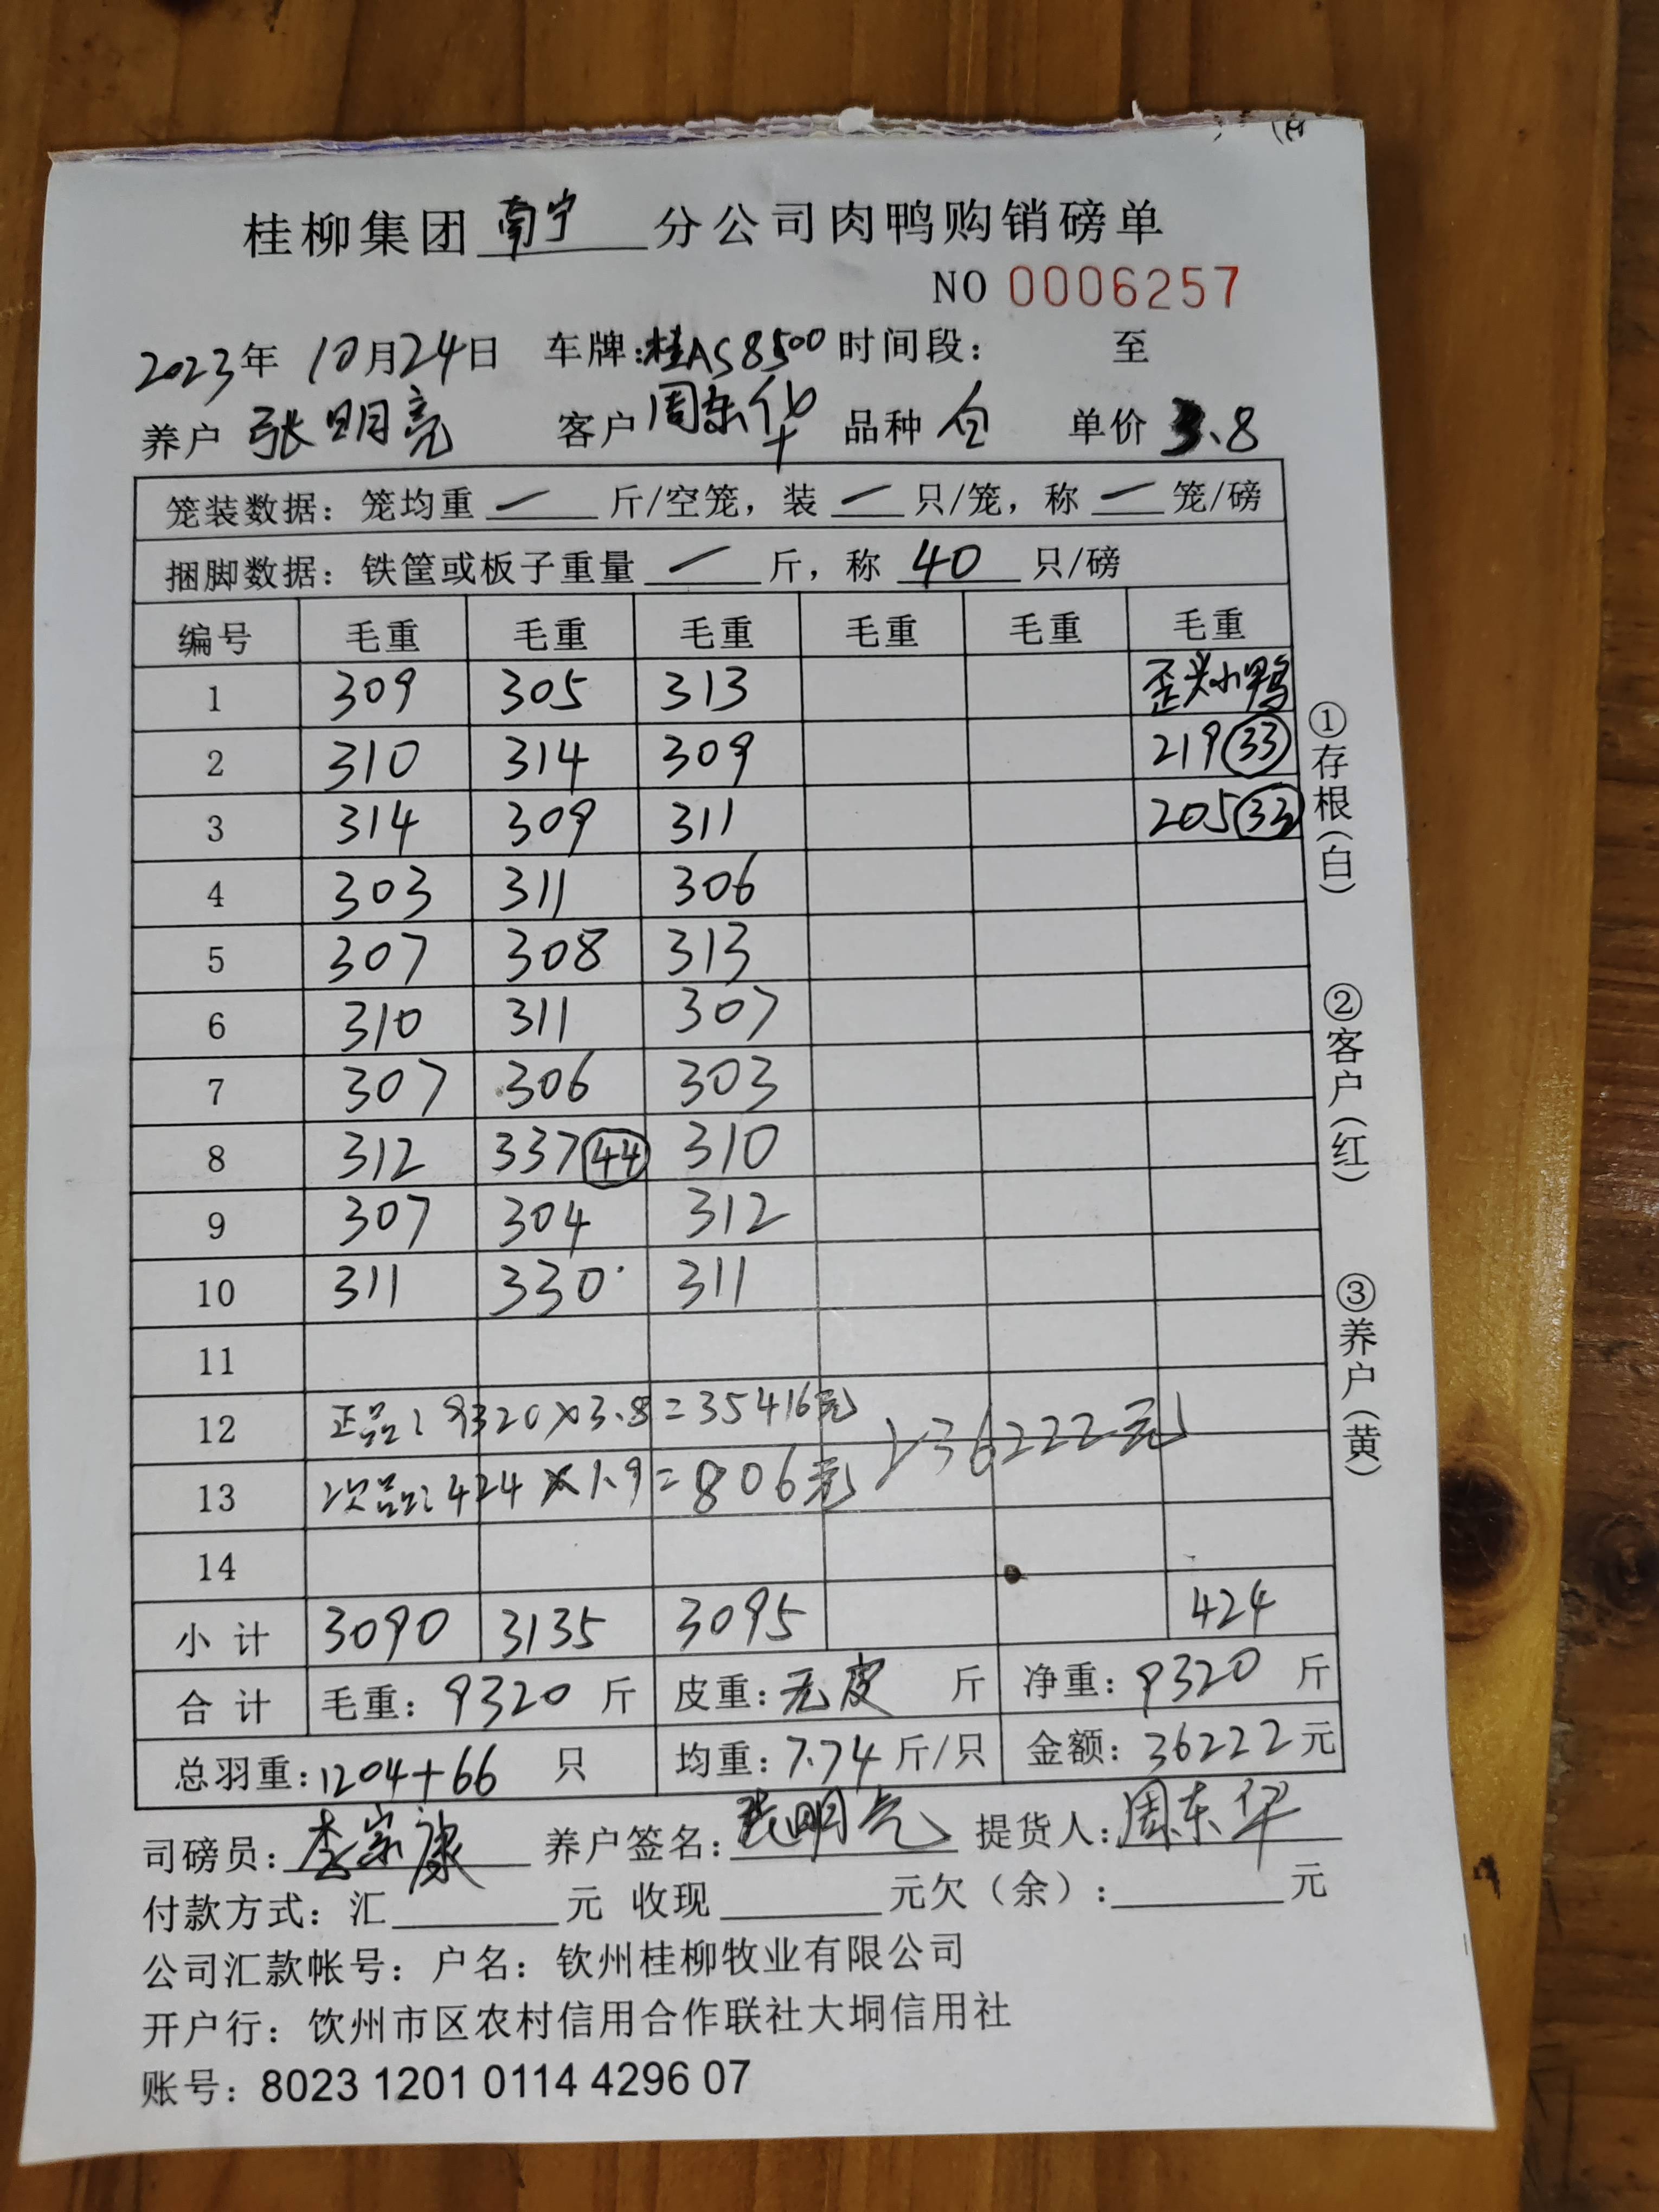 桂柳集团 南宁 分公司肉鸭购销磅单
NO 0006257
2023年 10月24日 车牌:桂AS8500 时间段: 至
养户 张明亮 客户 周东华 品种 仓 单价 3.8
笼装数据：笼均重 一 斤/空笼，装 一 只/笼，称 一 笼/磅
捆脚数据：铁筐或板子重量 一 斤，称 40 只/磅
编号 毛重 毛重 毛重 毛重 毛重 毛重
1 309 305 313 歪头小鸭
2 310 314 309 219 33
3 314 309 311 205 33
4 303 311 306
5 307 308 313
6 310 311 307
7 307 306 303
8 312 337 44 310
9 307 304 312
10 311 330 311
11
12 正品: 9320×3.8=35416元
13 次品: 424×1.9=806元 >36222元
14
小计 3090 3135 3095 424
合计 毛重: 9320 斤 皮重: 无皮 斤 净重: 9320 斤
总羽重: 1204+66 只 均重: 7.74 斤/只 金额: 36222 元
司磅员: 李宗康 养户签名: 张明亮 提货人: 周东华
付款方式: 汇 元 收现 元欠（余）: 元
公司汇款帐号: 户名: 钦州桂柳牧业有限公司
开户行: 饮州市区农村信用合作联社大垌信用社
账号: 8023 1201 0114 4296 07
①存根(白) ②客户(红) ③养户(黄)